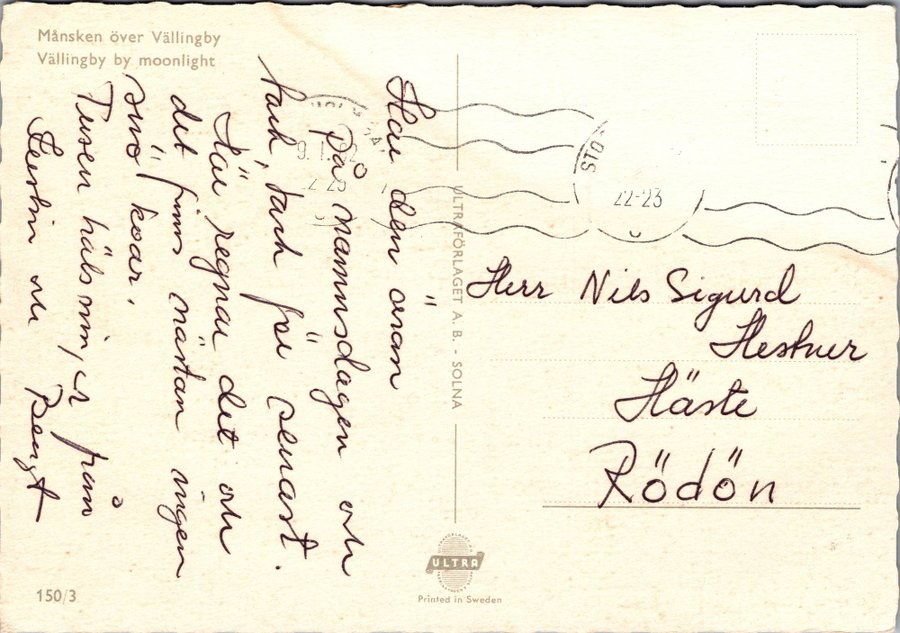 Månsken över Vällingby
Vällingby by moonlight
Har den äran
på namnsdagen och
tack, tack för senast.
Här regnar det och
det finns nästan ingen
snö kvar.
Tusen hälsningar från
Kerstin och Bengt
STO
22-23
Herr Nils Sigurd
Hestner
Häste
Rödön
ULTRAFÖRLAGET A.B. - SOLNA
ULTRA
Printed in Sweden
150/3